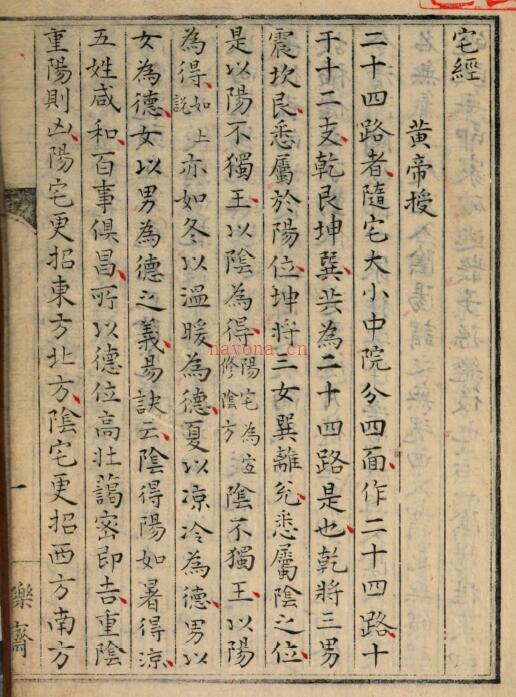 宅經
黄帝授
二十四路者隨宅大小中院分四面作二十四路十
干十二支乾艮坤巽共為二十四路是也乾將三男
震坎艮悉屬於陽位坤將三女巽離兊悉屬陰之位
是以陽不獨王以陰為得陽宅為宜修陰方陰不獨王以陽
為得如上説亦如冬以溫暖為德夏以凉冷為德男以
女為德女以男為德之義易訣云陰得陽如暑得凉
五姓咸和百事俱昌所以德位高壯藹密即吉重陰
重陽則凶陽宅更招東方北方陰宅更招西方南方
一
樂齋
nayona.cn